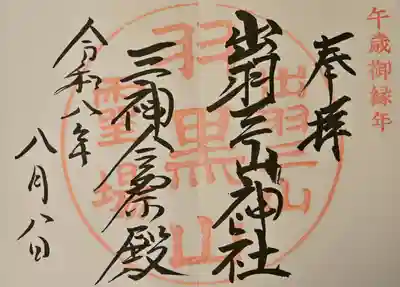 午歳御縁年
奉拝
出羽三山神社
三神合祭殿
令和八年
八月八日
出羽三山
羽黒山
霊場